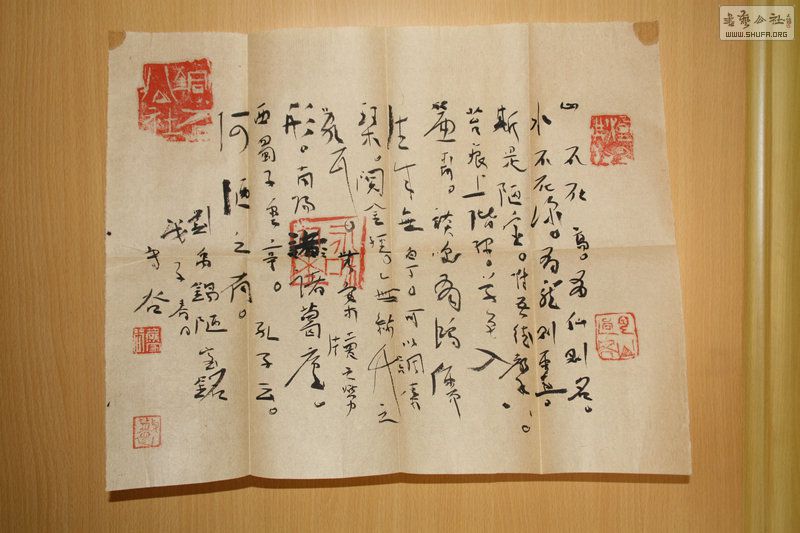 山不在高。有仙則名。
水不在深。有龍則靈。
斯是陋室。惟吾德馨。
苔痕上階綠。草色入
簾青。談笑有鴻儒
往來無白丁。可以調素
琴。閱金經。無絲竹之
亂耳。無案牘之勞
形。南陽諸葛廬。
西蜀子雲亭。孔子云。
何陋之有。
劉禹錫陋室銘
戊子春月
守谷
書藝公社
WWW.SHUFA.ORG